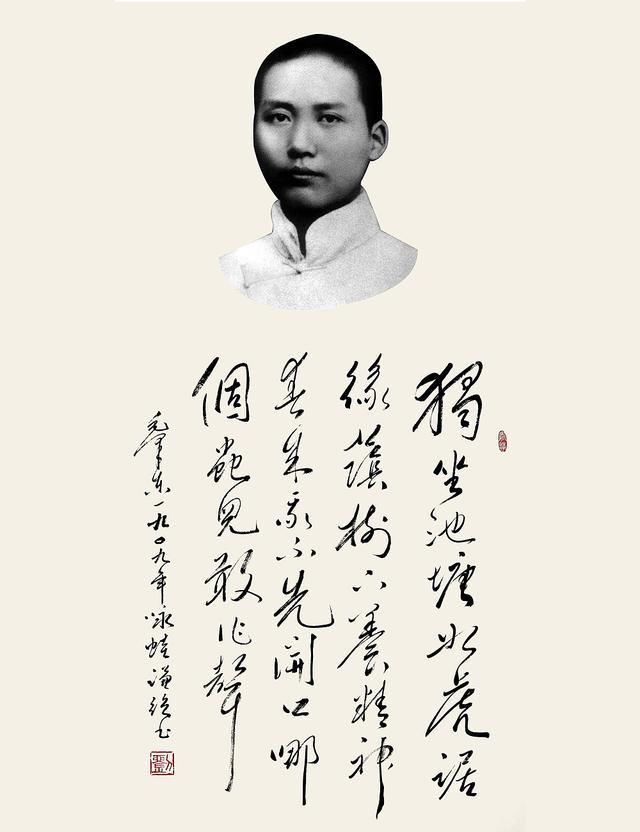 獨坐池塘如虎踞
緑蔭樹下養精神
春來我不先開口哪
個蟲兒敢作聲
毛澤东一九〇九年咏蛙谦书